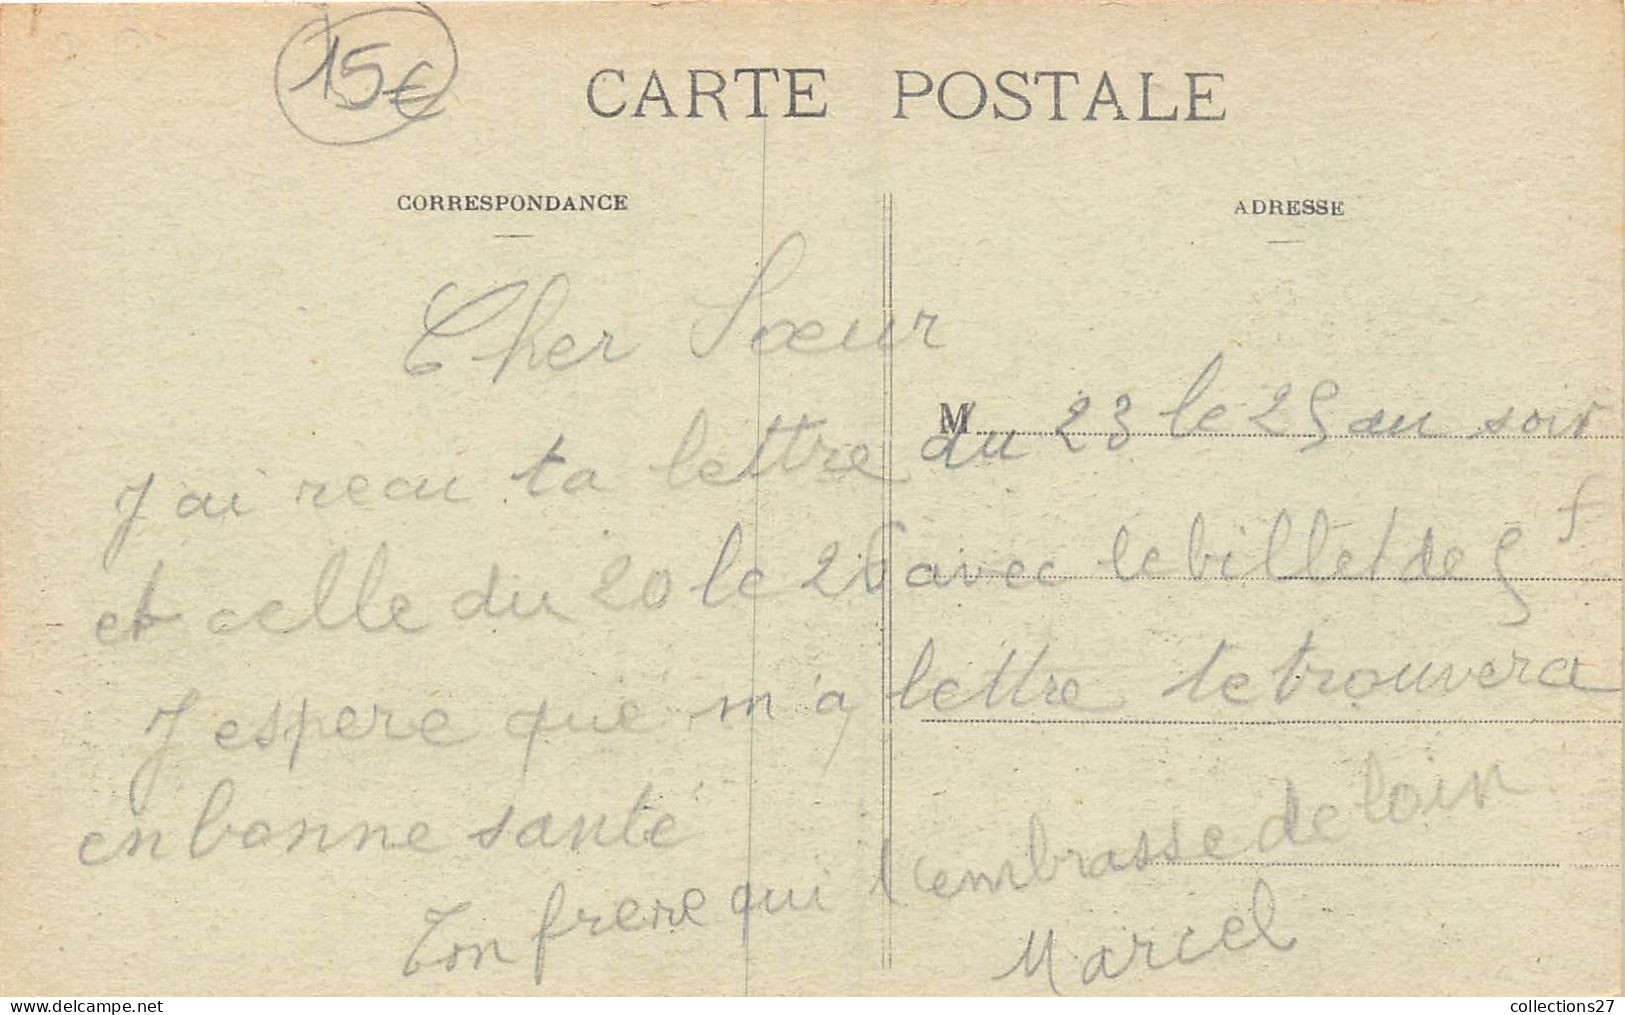 15€
CARTE POSTALE
CORRESPONDANCE
ADRESSE
Cher Sœur
M
J ai recu ta lettre du 23 le 25 au soir
et celle du 20 le 26 avec le billet de 5 f
J espere que m'a lettre te trouvera
en bonne santé
Ton frere qui t embrasse de loin
Marcel
collections27